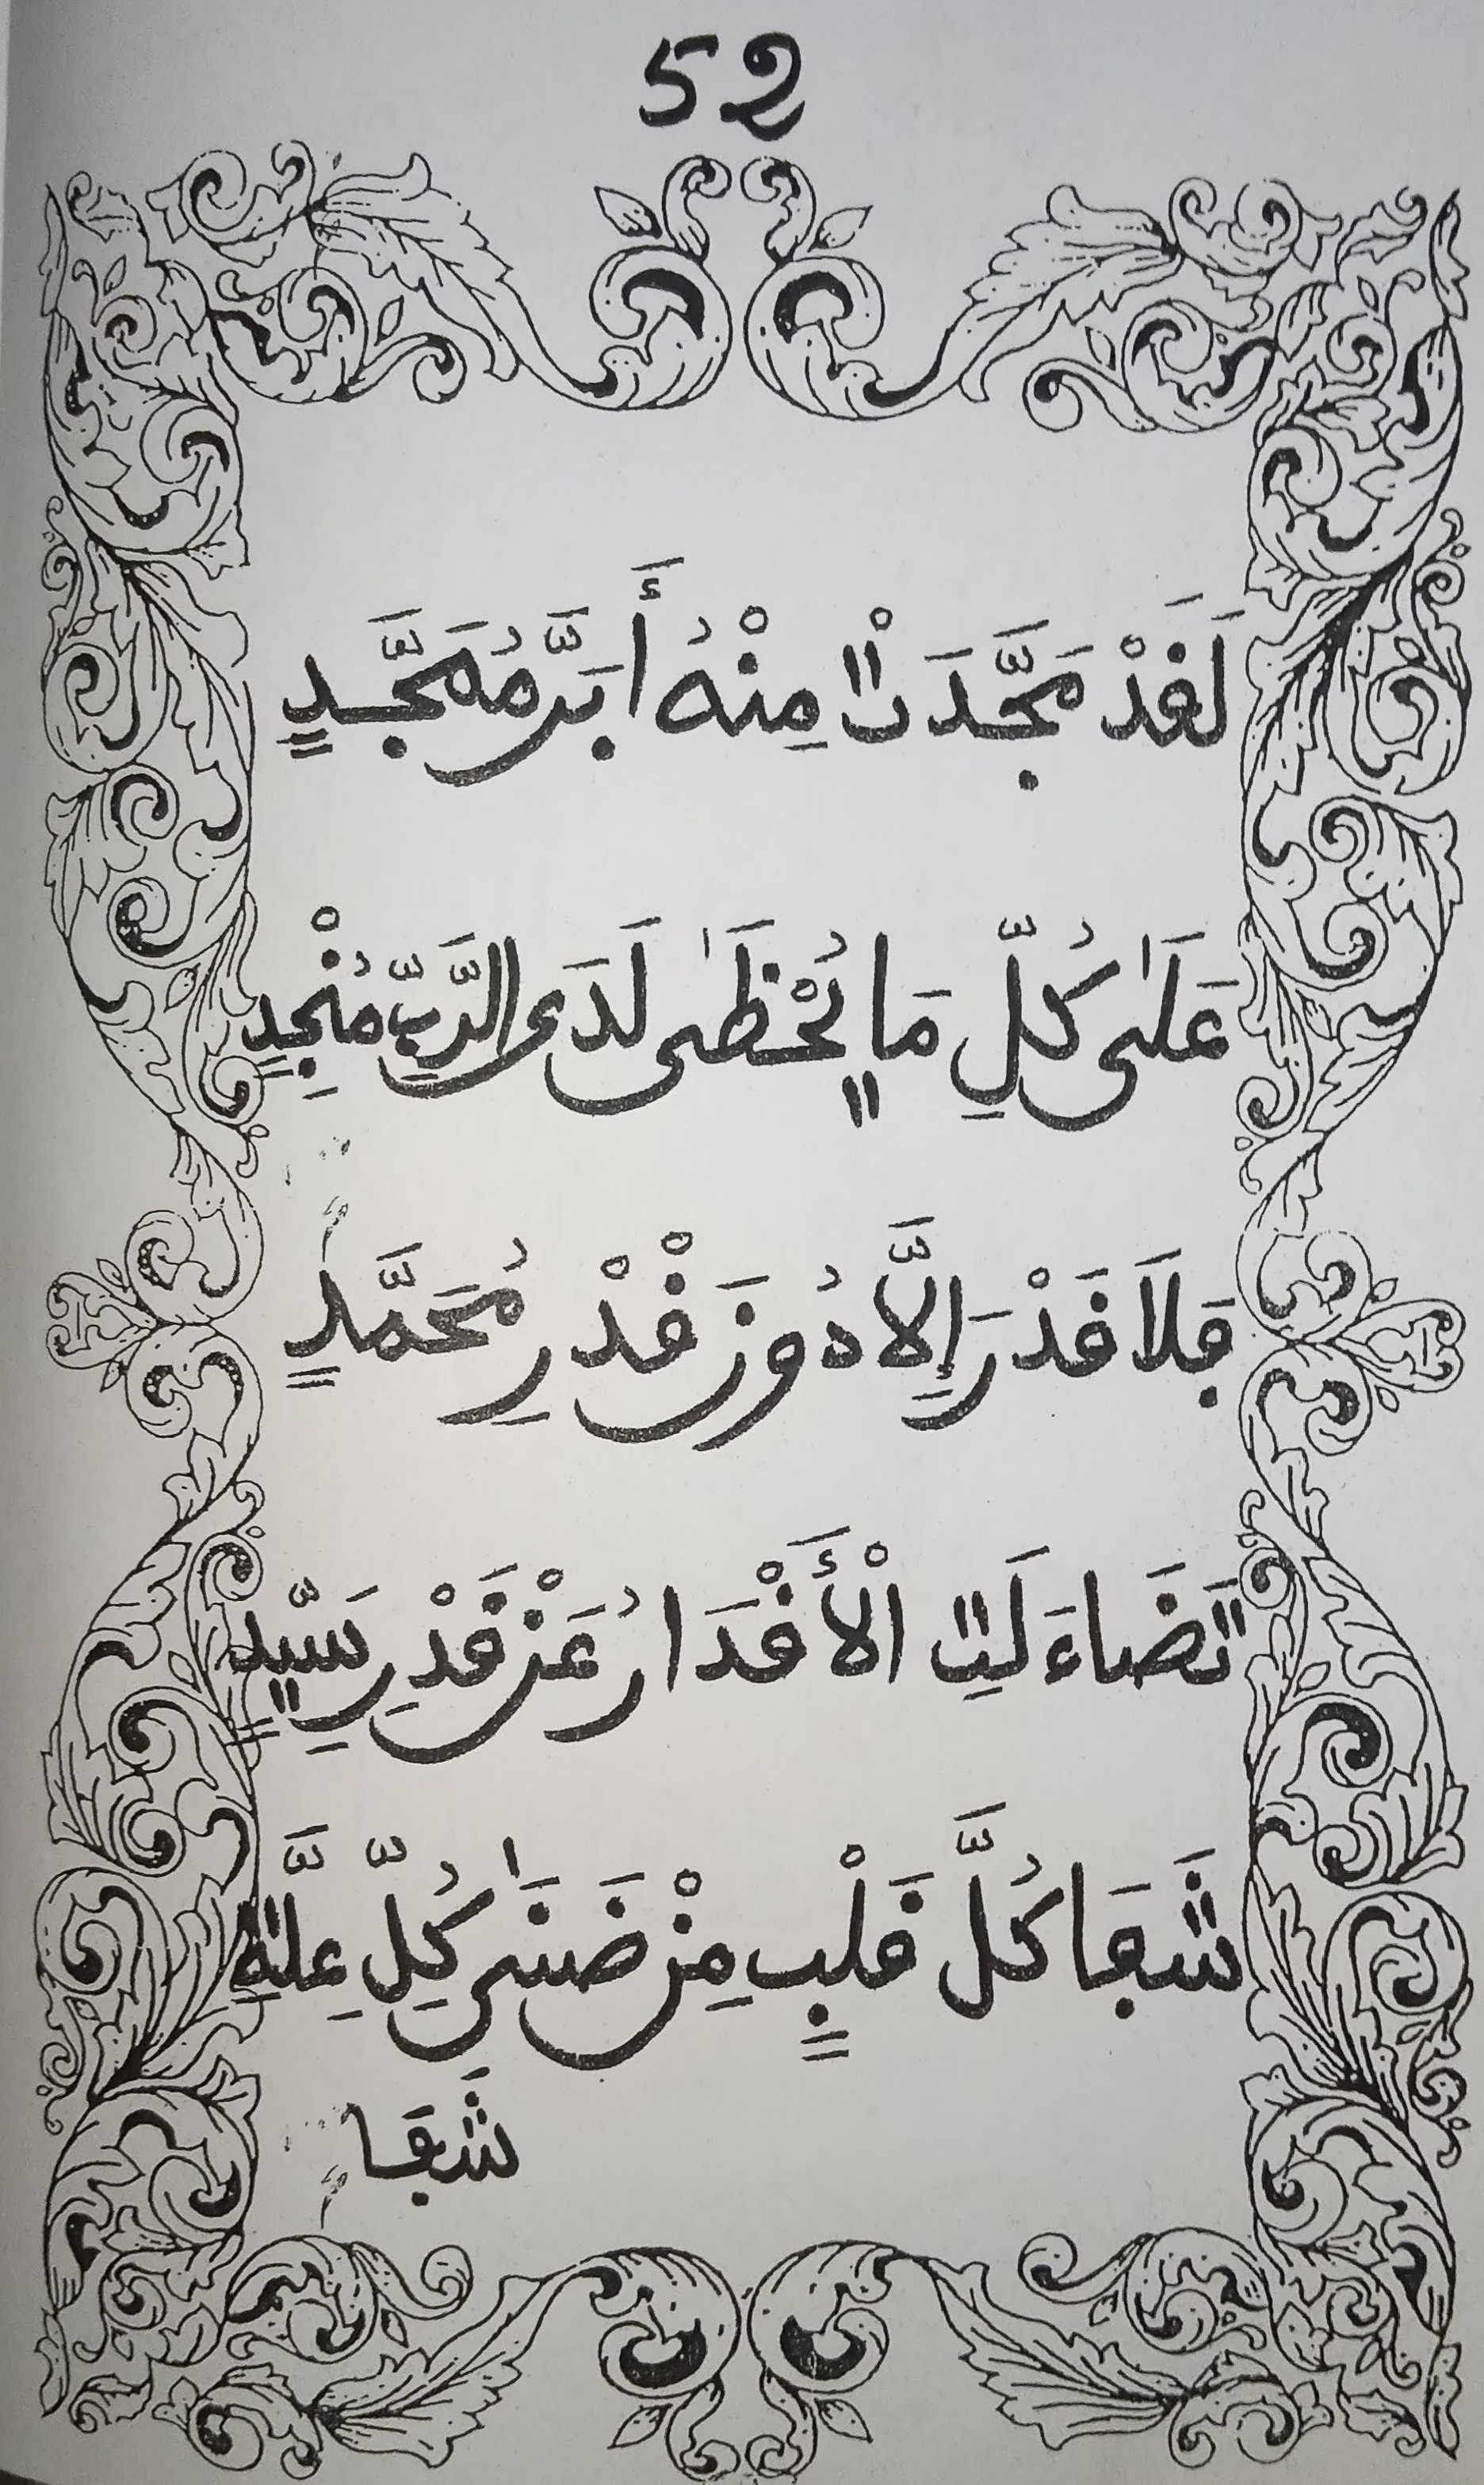 52
لَقَدْ مَجَّدَتْ مِنْهُ أَبَرَّ مُمَجَّدٍ
عَلَىٰ كُلِّ مَا يُحْظَىٰ لَدَى الرَّبِّ مُنْجِدٍ
فَلَا قَدْرَ إِلَّا دُونَ قَدْرِ مُحَمَّدٍ
تَضَاءَلَتِ الْأَقْدَارُ عَنْ قَدْرِ سَيِّدٍ
شَفَا كُلَّ قَلْبٍ مِنْ ضَنَىٰ كُلِّ عِلَّةِ
شَفَا